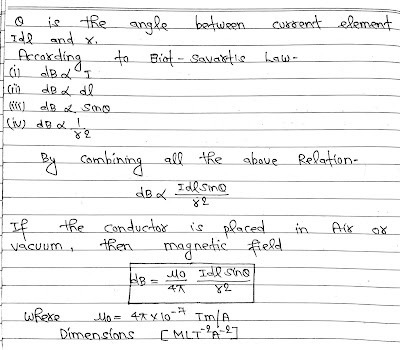 θ is the angle between current element
Idl and r.
According to Biot-Savart's Law-
(i) dB ∝ I
(ii) dB ∝ dl
(iii) dB ∝ Sinθ
(iv) dB ∝ 1/r2
By combining all the above Relation-
dB ∝ Idl Sinθ / r2
If the conductor is placed in Air or
vacuum, then magnetic field
dB = μ0/4π Idl Sinθ / r2
where μ0 = 4π×10^-7 Tm/A
Dimensions [MLT^-2A^-2]